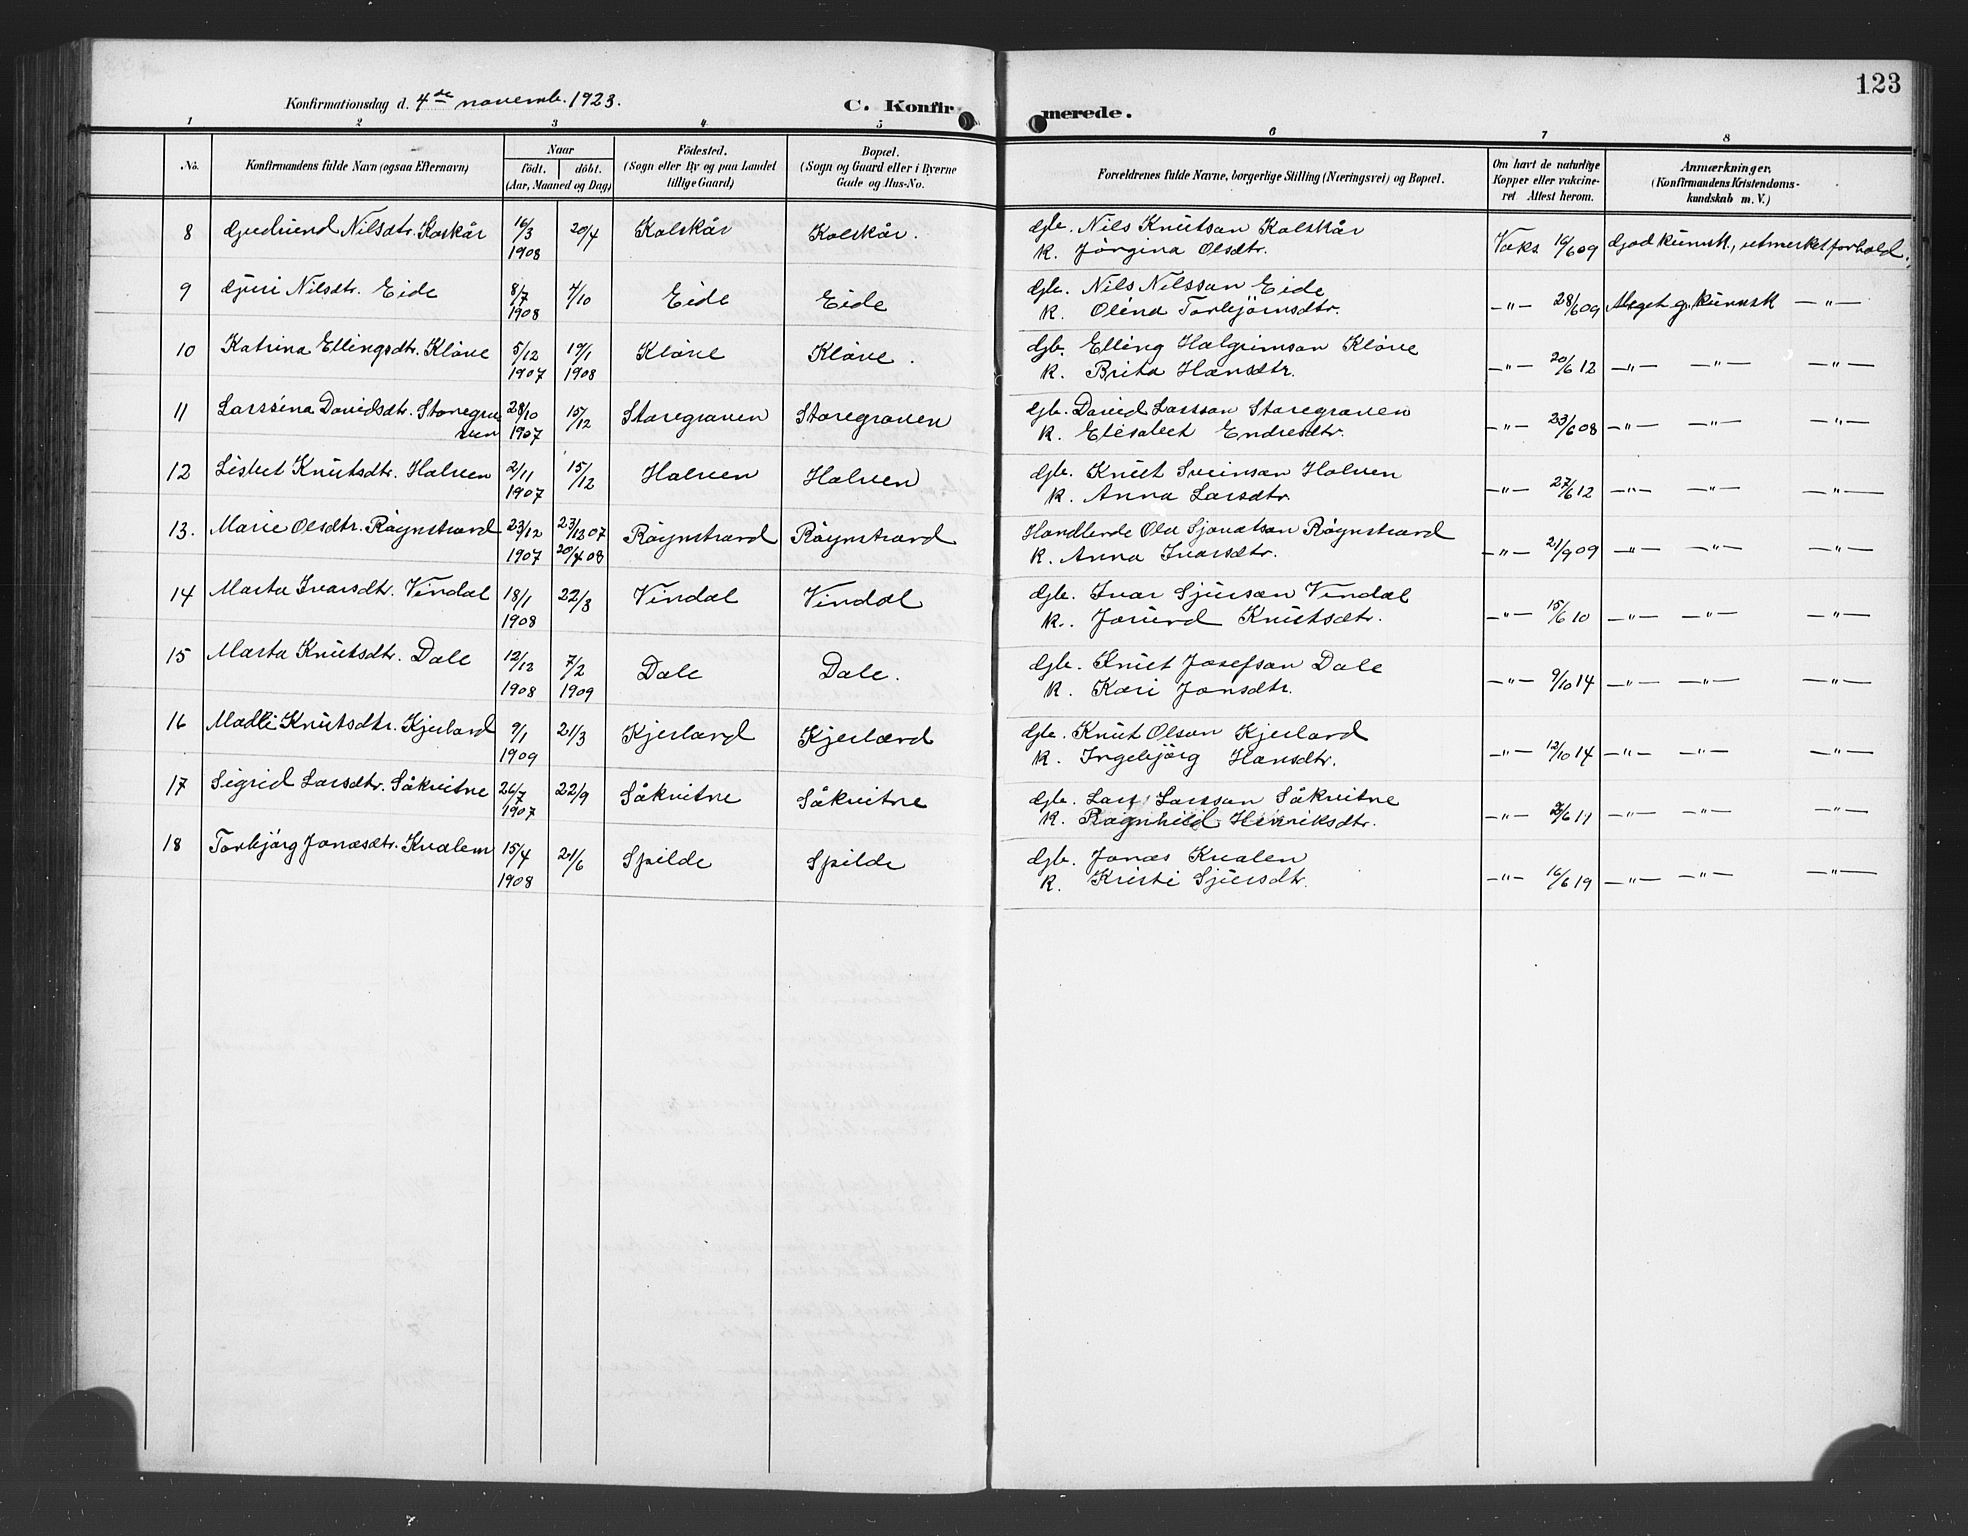 123
Konfirmationsdag d. 4de novemb. 1923. C. Konfirmerede.
1 2 3 4 5 6 7 8
No. Konfirmandens fulde Navn (ogsaa Efternavn) Naar födt. döbt. (Aar, Maaned og Dag) Födested. (Sogn eller By og paa Landet tillige Gaard) Bopæl. (Sogn og Gaard eller i Byerne Gade og Hus-No. Forældrenes fulde Navne, borgerlige Stilling (Næringsvei) og Bopæl. Om havt de naturlige Kopper eller vakcineret Attest herom. Anmærkninger. (Konfirmandens Kristendomskundskab m. V.)
8 Gudrund Nilsdtr. Koskår 16/3 1908 20/4 Kolskår Kolskår. Gb. Nils Knutson Kolskår
K. Jörgina Olsdtr. Vaks 09 God kunnsk., utmerket forhold.
9 Guri Nilsdtr. Eide 8/7 1908 4/10 Eide Eide Gb. Nils Nilsson Eide
K. Olina Torbjörnsdtr. —"— 28/6 09 Meget g. kunnsk —"—
10 Katrina Ellingsdtr. Klöve 5/12 1907 19/1 1908 Klöve Klöve. Gb. Elling Halgrimson Klöve
K. Brita Hansdtr. —"— 20/6 12 —"— —"— —"—
11 Larssina Davidsdtr. Storegraven 28/10 1907 15/12 Storegraven Storegraven Gb. David Larsson Storegraven
K. Elisabet Endresdtr. —"— 23/6 08 —"— —"— —"—
12 Lisbet Knutsdtr. Halven 2/11 1907 15/12 Halven Halven Gb. Knut Sveinson Halven
K. Anna Larsdtr. —"— 27/6 12 —"— —"— —"—
13. Marie Olsdtr. Röynstrand 23/12 1907 23/12 07 20/4 08 Röynstrand Röynstrand Handlende Ola Sjovatson Röynstrand
K. Anna Ivarsdtr. —"— 21/9 09 —"— —"— —"—
14 Marta Ivarsdtr. Vindal 18/1 1908 22/3 Vindal Vindal Gb. Ivar Sjurson Vindal
K. Jorund Knutsdtr. —"— 15/6 10 —"— —"— —"—
15 Marta Knutsdtr. Dale 12/12 1908 7/2 1909 Dale Dale. Gb. Knut Josefson Dale
K. Kari Jonsdtr. —"— 9/10 14 —"— —"— —"—
16 Madli Knutsdtr. Kjerland 9/1 1909 21/3 Kjerland Kjerland Gb. Knut Olson Kjerland
K. Ingebjörg Hansdtr. —"— 12/10 14 —"— —"— —"—
17 Sigrid Larsdtr. Såkvitne 26/7 1907 22/9 Såkvitne Såkvitne Gb. Lars Larsson Såkvitne
K. Ragnhild Henriksdtr. —"— 11 —"— —"— —"—
18 Torbjörg Jonasdtr. Kvalem 15/4 1908 21/6 Spilde Spilde Gb. Jonas Kvalen
K. Kristi Sjursdtr. —"— 16/6 19 —"— —"— —"—